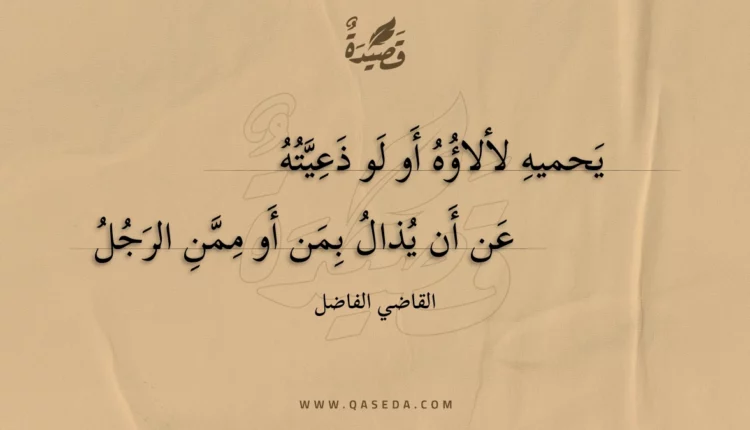 قَصِيْدَةٌ
يَحميهِ لألاؤُهُ أَو لَو ذَعِيَّتُهُ
عَن أَن يُذالُ بِمَن أَو مِمَّنِ الرَجُلُ
القاضي الفاضل
WWW.QASEDA.COM